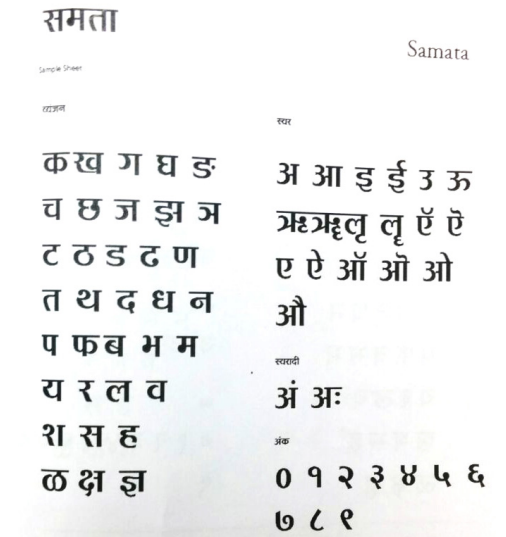 समता
Samata
Sample Sheet
व्यंजन
क ख ग घ ङ
च छ ज झ ञ
ट ठ ड ढ ण
त थ द ध न
प फ ब भ म
य र ल व
श स ह
ळ क्ष ज्ञ
स्वर
अ आ इ ई उ ऊ
ऋ ॠ ऌ ॡ ऍ ऎ
ए ऐ ऑ ऒ ओ
औ
स्वरादी
अं अः
अंक
0 १ २ ३ ४ ५ ६
७ ८ ९